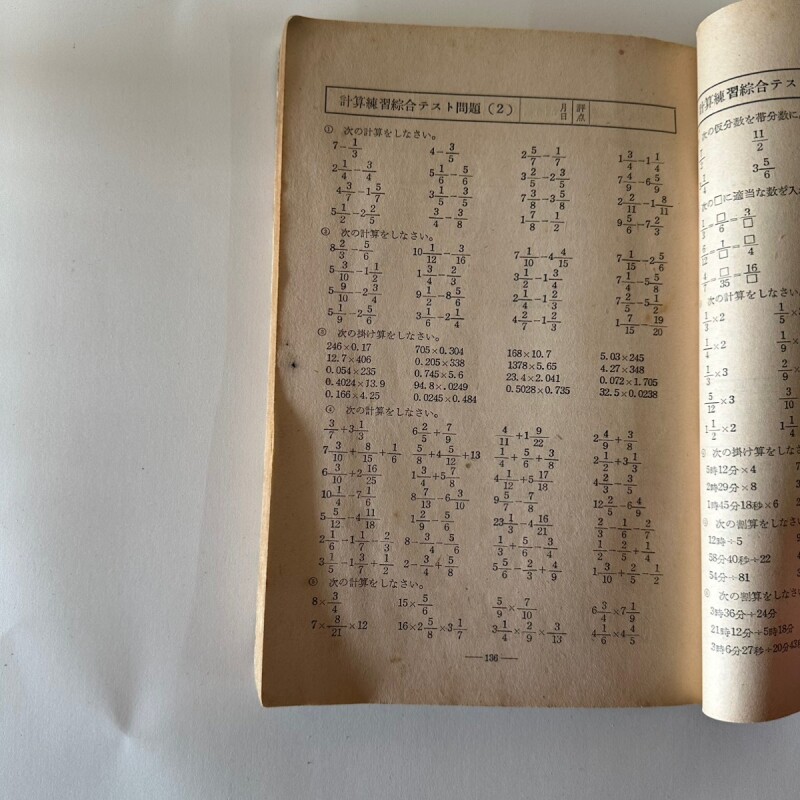 計算練習綜合テスト問題(2) 月日 評点
① 次の計算をしなさい。
7-1/3 4-3/5 2 5/7-1/7 1 3/4-1 1/4
2 1/4-3/4 5 1/6-5/6 3 2/5-2 3/5 7 4/9-6 5/9
4 3/7-1 5/7 3 1/5-3/5 7 3/8-3 5/8 2 2/11-1 8/11
5 1/2-2 2/5 3/4-3/8 1 7/8-1/2 9 5/6-7 2/3
② 次の計算をしなさい。
8 2/3-5/6 10 1/12-3/16 7 1/10-4 4/15 7 1/15-2 5/6
5 3/10-1 1/2 1 3/4-2/3 3 1/2-1 3/4 7 1/4-5 5/8
5 9/10-2 3/4 9 1/2-8 5/6 2 1/4-1 2/3 7 2/5-5 1/2
5 1/9-2 5/6 3 1/6-2 1/4 4 2/7-1 2/3 1 7/15-19/20
③ 次の掛け算をしなさい。
246×0.17 705×0.304 168×10.7 5.03×245
12.7×406 0.205×338 1378×5.65 4.27×348
0.054×235 0.745×5.6 23.4×2.041 0.072×1.705
0.4024×13.9 94.8×.0249 0.5028×0.735 32.5×0.0238
0.166×4.25 0.0245×0.484
④ 次の計算をしなさい。
3/7+3 1/3 6 2/5+7/9 4/11+1 9/22 2 4/9+3/8
7 3/10+8/15+1/6 5/8+4 5/12+13 1/4+5/6+3/8 2 1/2+3 1/3
6 3/10+2 16/25 1 3/4+5 7/8 4 1/12+5 17/18 4 2/3-3/5
10 1/4-7 1/6 8 7/13-6 3/10 9 5/7-7/8 12 2/5-6 4/9
5 5/12-4 11/18 1 2/9-5/6 23 1/3-4 16/21 2/3-1/6-2/7
2 1/6-1 1/7-2/3 8-3/4-5/6 1/3+5/6-3/4 1/2-2/5+1/4
3 1/5-1 3/7+1/2 2-3/4+5/8 5 5/6-2/3+4/9 1 3/10+2/5-1/2
⑤ 次の計算をしなさい。
8×3/4 15×5/6 5/9×7/10 6 3/4×7 1/9
7×8/21×12 16×2 5/8×3 1/7 3 1/4×2/9×3/13 4 1/6×4 4/5
—136—
計算練習綜合テス
次の仮分数を帯分数に
11/2
3 5/6
次の□に適当な数を入
1/3=□/6=3/□
6/12=1/□=□/4
4/7=□/35=16/□
次の計算をしなさい
1/3×2
1/4×2
1/3×3
5/12×3 3/10
1 1/2×2 1 1/4
次の掛け算をしなさ
5時12分×4
2時29分×8
1時45分18秒×6
次の割算をしなさ
12時÷5
58分40秒÷22
54分÷81
次の割算をしなさ
2時36分÷24分
21時12分÷5時18分
2時6分27秒÷20分